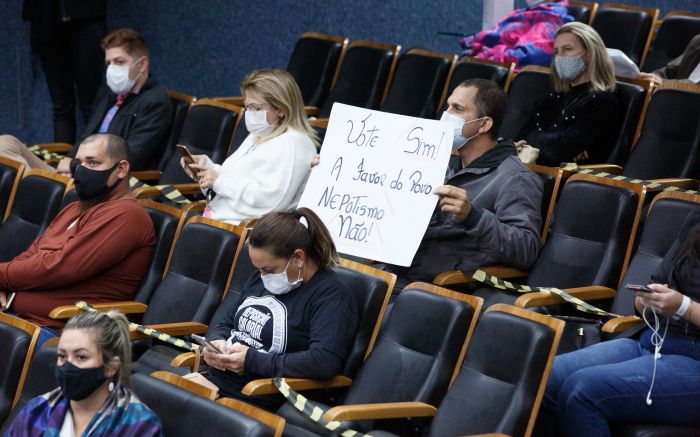 Vote Sim!
A Favor do Povo
NEPOTISMO
Não!